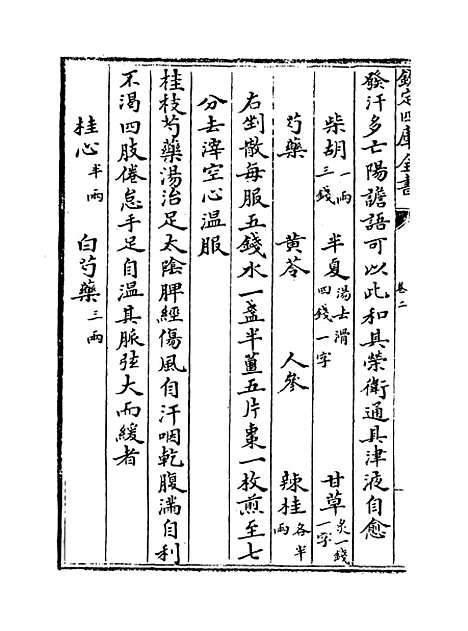 欽定四庫全書
卷二
發汗多亡陽譫語可以此和其榮衛通其津液自愈
柴胡一兩三錢 半夏湯去滑四錢一字 甘草炙一錢一字
芍藥 黄芩 人參 辣桂各半兩
右剉散每服五錢水一盞半薑五片棗一枚煎至七
分去滓空心温服
桂枝芍藥湯治足太陰脾經傷風自汗咽乾腹滿自利
不渴四肢倦怠手足自温其脈弦大而緩者
桂心半兩 白芍藥三兩